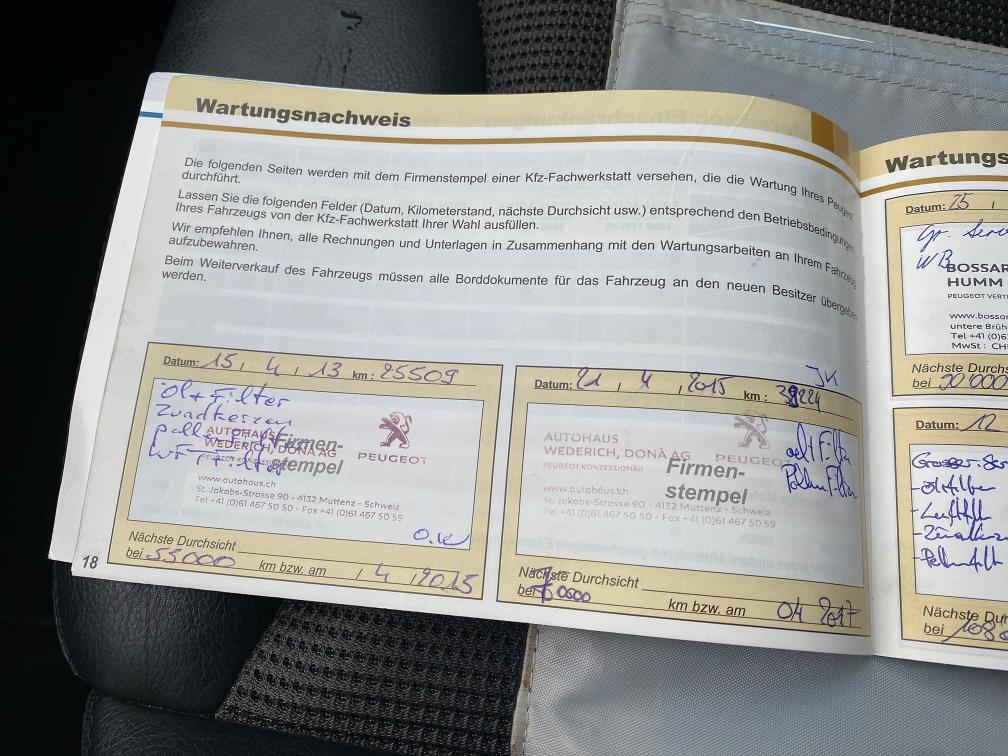 Wartungsnachweis
Die folgenden Seiten werden mit dem Firmenstempel einer Kfz-Fachwerkstatt versehen, die die Wartung Ihres Peugeot
durchführt.
Lassen Sie die folgenden Felder (Datum, Kilometerstand, nächste Durchsicht usw.) entsprechend den Betriebsbedingungen
Ihres Fahrzeugs von der Kfz-Fachwerkstatt Ihrer Wahl ausfüllen.
Wir empfehlen Ihnen, alle Rechnungen und Unterlagen in Zusammenhang mit den Wartungsarbeiten an Ihrem Fahrzeug
aufzubewahren.
Beim Weiterverkauf des Fahrzeugs müssen alle Borddokumente für das Fahrzeug an den neuen Besitzer übergeben
werden.
Datum: 15, 4, 13 km: 25509
Öl + Filter
Zündkerzen
AUTOHAUS
WEDERICH, DONÀ AG
PEUGEOT KONZESSIONÄR
Firmen-
stempel
PEUGEOT
www.autohaus.ch
St. Jakobs-Strasse 90 - 4132 Muttenz - Schweiz
Tel +41 (0)61 467 50 50 - Fax +41 (0)61 467 50 59
Nächste Durchsicht
bei 55000 km bzw. am / 4, 2015
18
Datum: 21, 4, 2015 km:
AUTOHAUS
WEDERICH, DONÀ AG
PEUGEOT KONZESSIONÄR
Firmen-
stempel
PEUGEOT
www.autohaus.ch
St. Jakobs-Strasse 90 - 4132 Muttenz - Schweiz
Tel +41 (0)61 467 50 50 - Fax +41 (0)61 467 50 59
Nächste Durchsicht
bei km bzw. am 04 2017
Wartungs
Datum: 25
Gr. Serv
WB
BOSSAR
HUMM
PEUGEOT VERT
www.bossar
untere Brüh
Tel +41 (0)6
MwSt: CH
Nächste Durchs
bei 90000
Datum: 12
- Luftfilt
Nächste Dur
bei 108